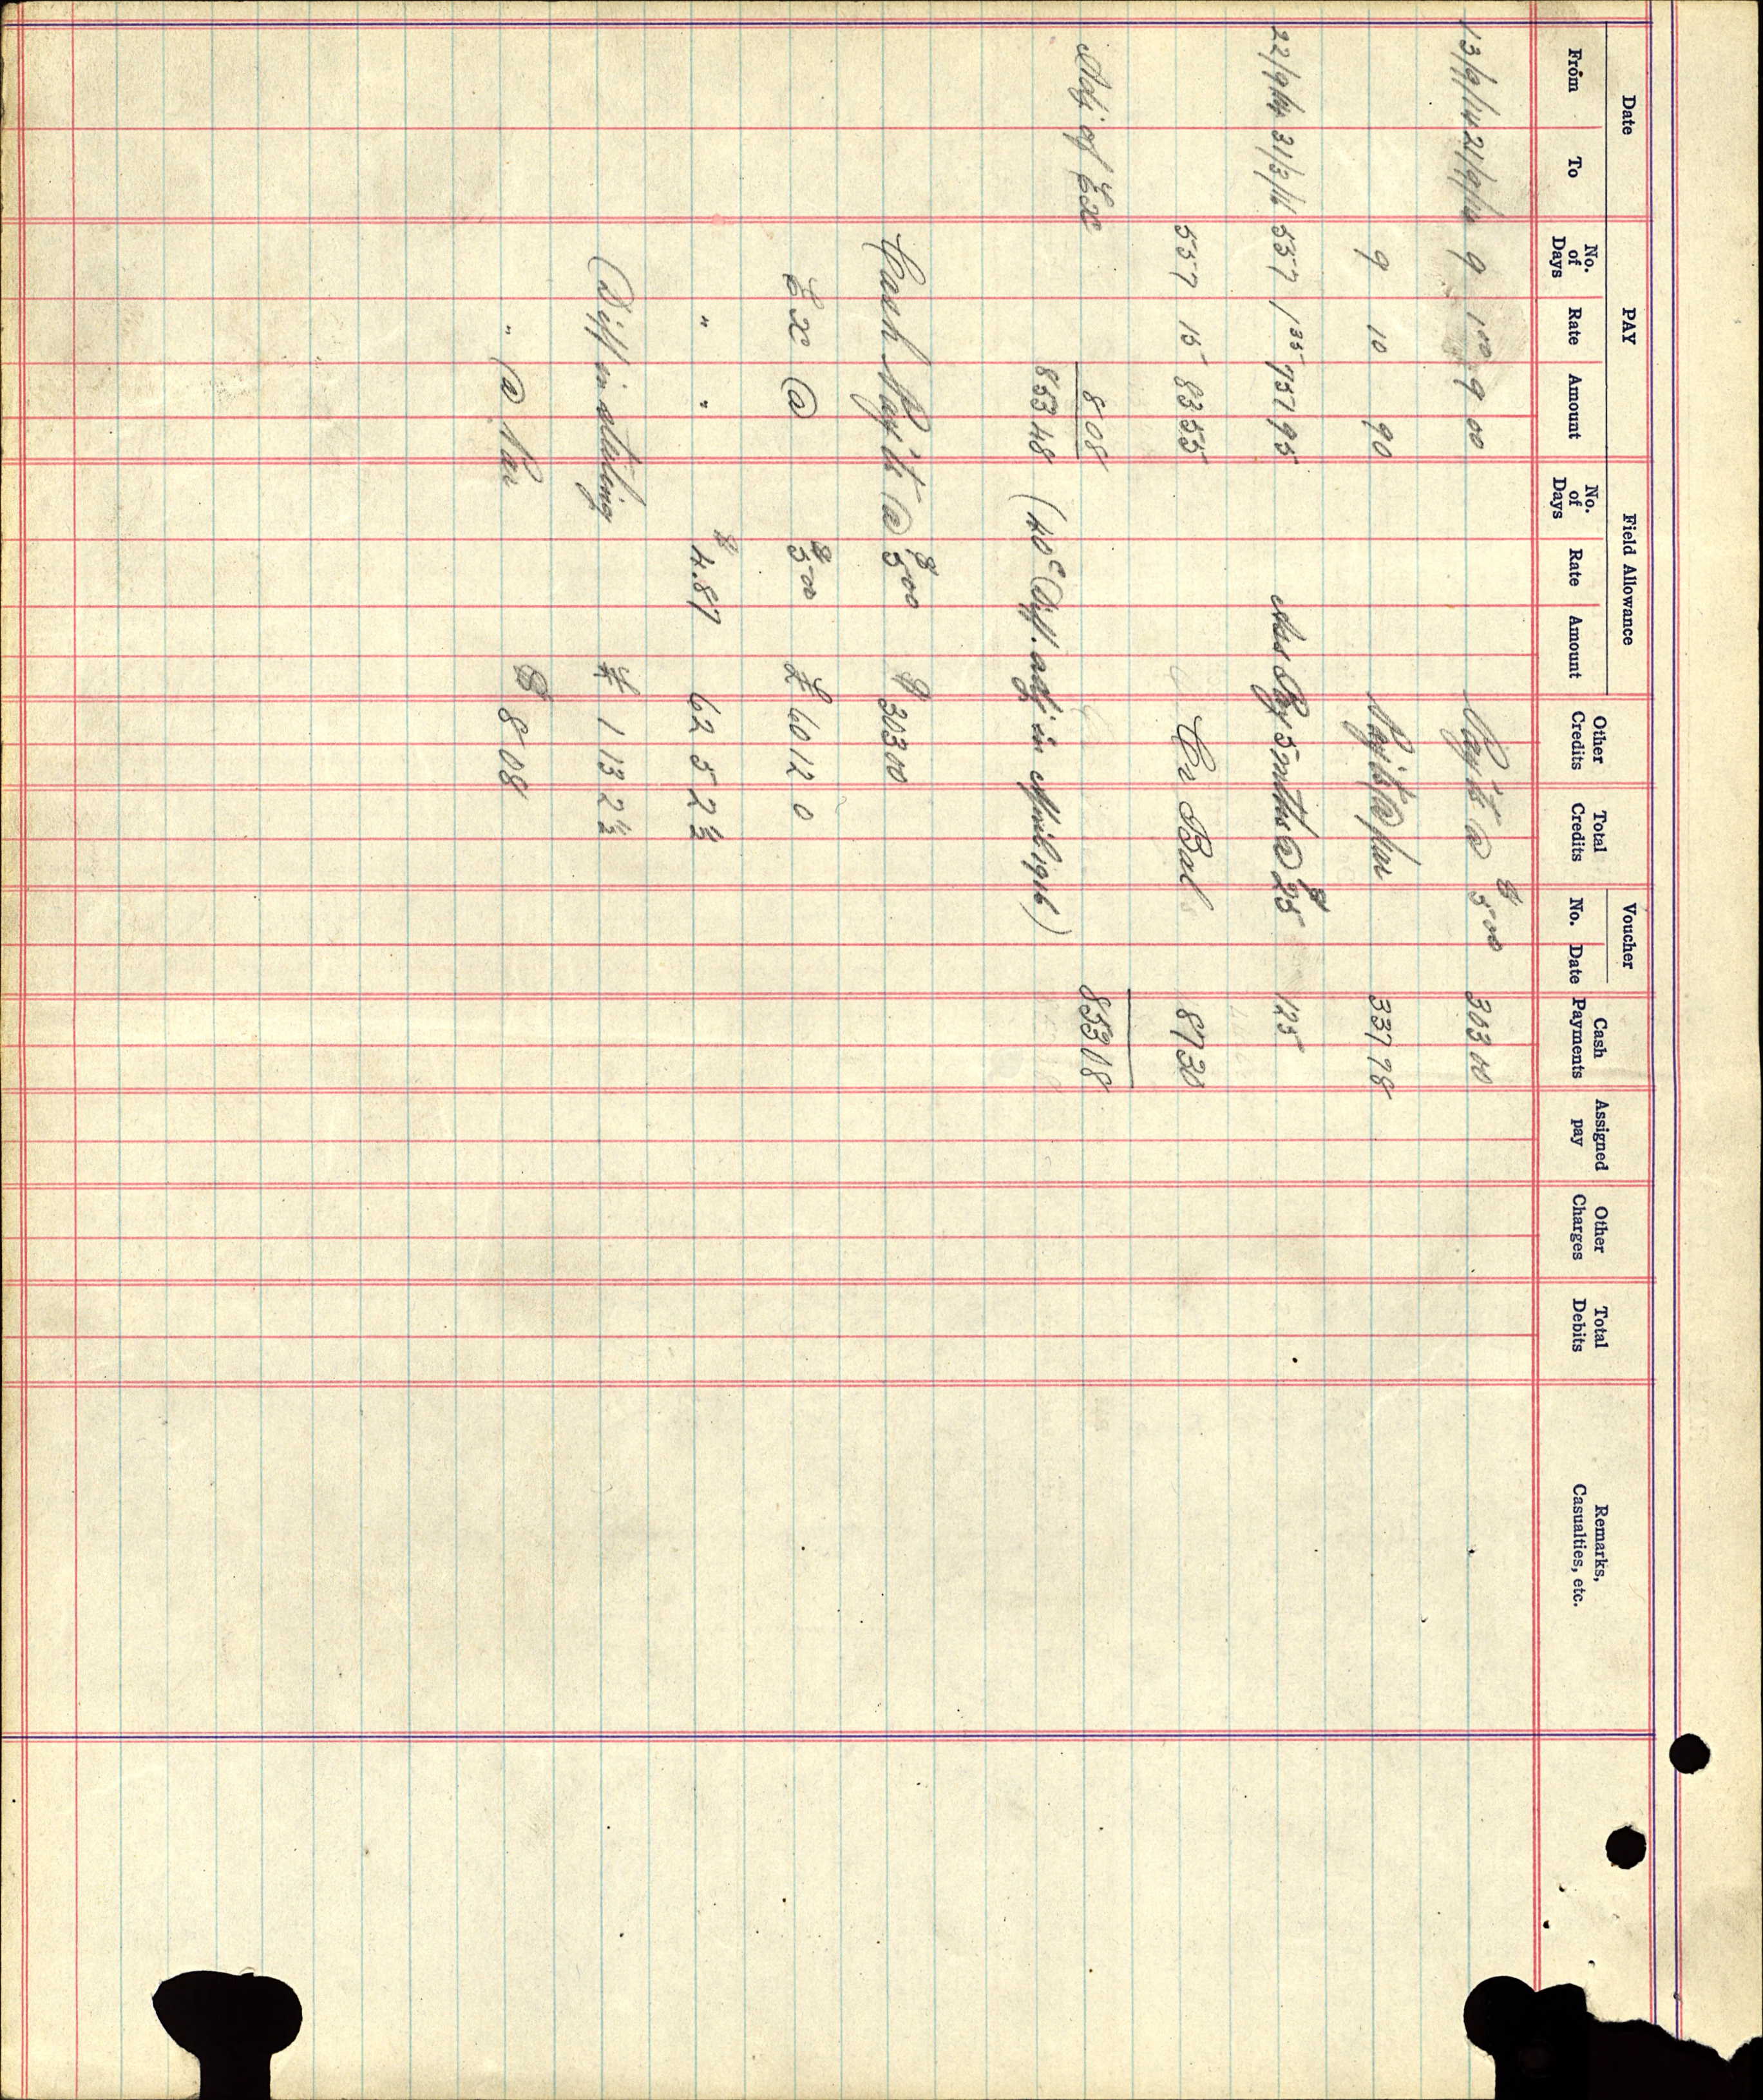 Date PAY Field Allowance Other Credits Total Credits Voucher Cash Payments Assigned pay Other Charges Total Debits Remarks, Casualties, etc.
From To No. of Days Rate Amount No. of Days Rate Amount No. Date
13/9/14 21/9/14 9 1 00 9 00 Pay'ts @ $5 00 303 00
9 10 90 Pay'ts @ par 337 78
22/9/14 31/3/16 557 1 35 751 95 Ass Pay 5 mths @ $25 125
557 15 83 55 Cr Bal 87 30
Adj of Ex 8 08 853 08
853 48 (40c Diff. adj in April 1916)
Cash Pay'ts @ $5 00 $ 303 00
Ex @ $5 00 £ 60 12 0
" " $4.87 62 5 2 1/2
Diff in sterling £ 1 13 2 1/2
" @ Par $ 8 08